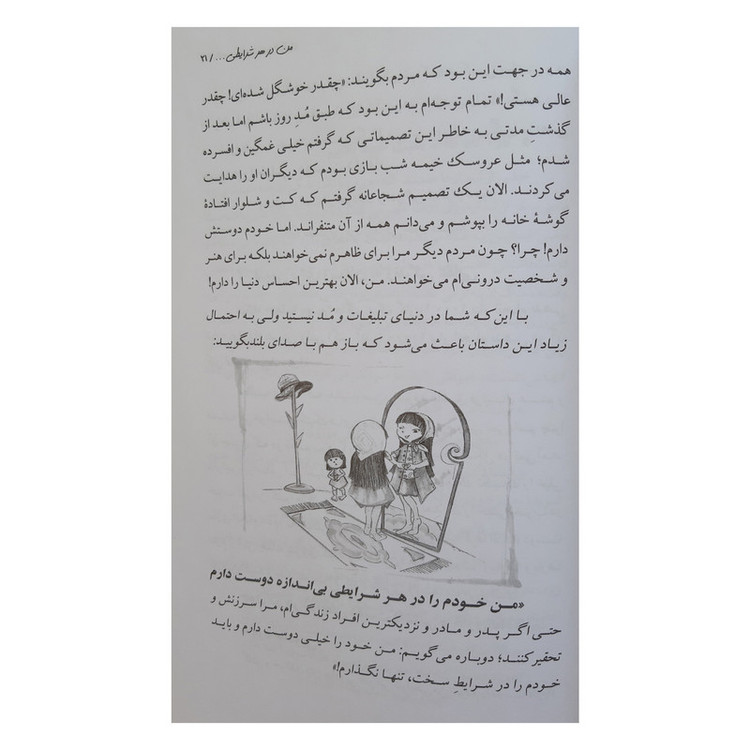 من در هر شرایطی... / ۲۱
همه در جهت این بود که مردم بگویند: «چقدر خوشگل شده‌ای! چقدر
عالی هستی!» تمام توجه‌ام به این بود که طبق مُدِ روز باشم اما بعد از
گذشتِ مدتی به خاطر این تصمیماتی که گرفتم خیلی غمگین و افسرده
شدم؛ مثل عروسک خیمه شب بازی بودم که دیگران او را هدایت
می‌کردند. الان یک تصمیم شجاعانه گرفتم که کت و شلوار افتادهٔ
گوشهٔ خانه را بپوشم و می‌دانم همه از آن متنفراند. اما خودم دوستش
دارم! چرا؟ چون مردم دیگر مرا برای ظاهرم نمی‌خواهند بلکه برای هنر
و شخصیت درونی‌ام می‌خواهند. من، الان بهترین احساس دنیا را دارم!
با این که شما در دنیای تبلیغات و مُد نیستید ولی به احتمال
زیاد این داستان باعث می‌شود که باز هم با صدای بلندبگویید:
«من خودم را در هر شرایطی بی‌اندازه دوست دارم
حتی اگر پدر و مادر و نزدیکترین افراد زندگی‌ام، مرا سرزنش و
تحقیرکنند؛ دوباره می‌گویم: من خود را خیلی دوست دارم و باید
خودم را در شرایطِ سخت، تنها نگذارم!»